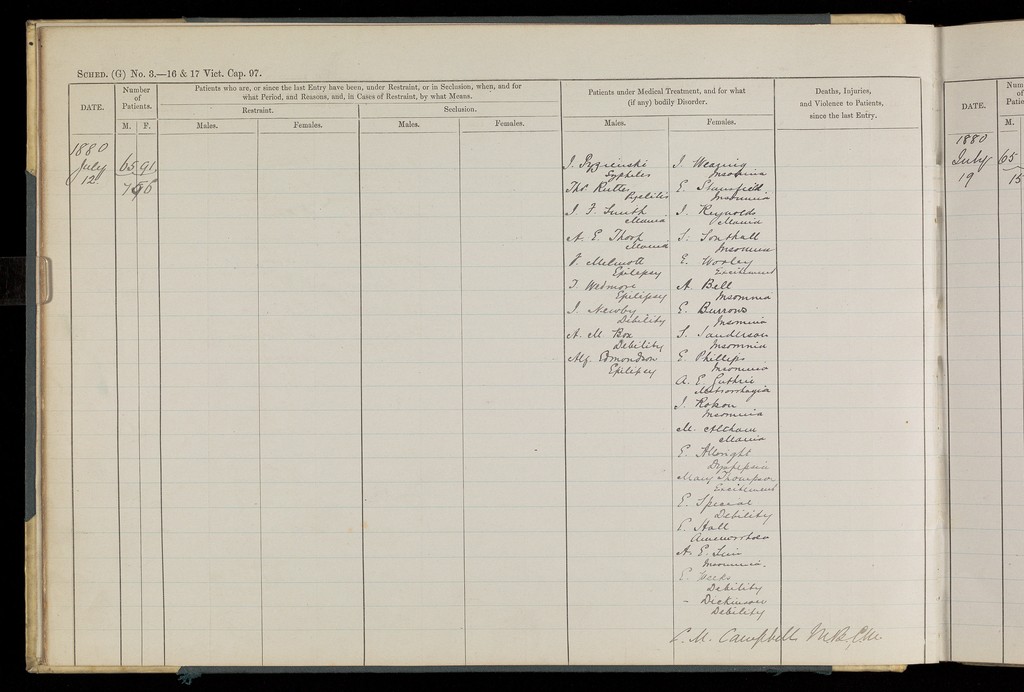 SCHED. (G) No. 3.—16 & 17 Vict. Cap. 97.
DATE.
Number
of
Patients.
M. F.
Patients who are, or since the last Entry have been, under Restraint, or in Seclusion, when, and for
what Period, and Reasons, and, in Cases of Restraint, by what Means.
Restraint.
Seclusion.
Males.
Females.
Males.
Females.
Patients under Medical Treatment, and for what
(if any) bodily Disorder.
Males.
Females.
Deaths, Injuries,
and Violence to Patients,
since the last Entry.
1880
July
12
65 91
Syphilis
Thos Rutter
Pyelitis
J. F. Smith
Mania
A. E. Thorp
Mania
Epilepsy
T. Wedmore
Epilepsy
J. Newby
Debility
A. M. Box
Debility
Alf. Edmondson
Epilepsy
J. Wearing
Insomnia
E. Stansfield
Insomnia
J. Reynolds
Mania
S. Southall
Insomnia
E. Worley
Excitement
A. Bell
Insomnia
E. Burrows
Insomnia
S. Sanderson
Insomnia
E. Phillips
Insomnia
A. E. Guthrie
Metrorrhagia
Insomnia
M. Altham
Mania
E. Allbright
Dyspepsia
Mary Thompson
Excitement
E. Special
Debility
E. Hall
Amenorrhoea
A. E.
Insomnia.
E. Weeks
Debility
– Dickinson
Debility
C. M. Campbell M.B., C.M.
DATE.
Num
of
Patie
M.
1880
July
19
65
15